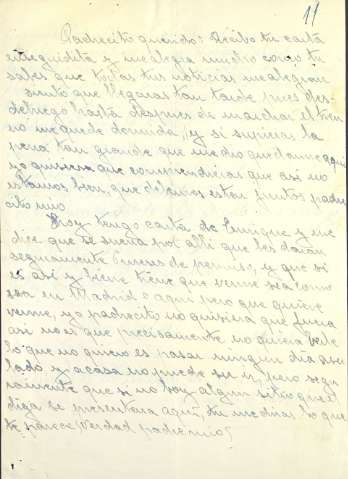 11
Padrecito querido: Recibo tu carta
enseguidita y me alegra mucho como tu
sabes que todas tus noticias me alegran
siento que llegaras tan tarde pues des-
de luego hasta despues de marchar el tren
no me quede dormida, y si supieras la
pena tan grande que me dio quedarme aqui
yo quisiera que comprendieras que asi no
estamos bien, que debiamos estar juntos padre
cito mio.
Hoy tengo carta de Enrique y me
dice que se suena por alli que les darán
seguramente permiso, y que si
es asi y viene tiene que verme sea como
sea en Madrid o aqui pero que quiere
verme, yo padrecito no quisiera que fuera
asi no es que precisamente no quiera verle
lo que no quiero es pasar ningun dia a su
lado y a casa no puede ser ir, pero segu
ramente que si no hoy algun sitio que el
diga se presentara aqui, tu me diras lo que
te parece ¿verdad padre mio?